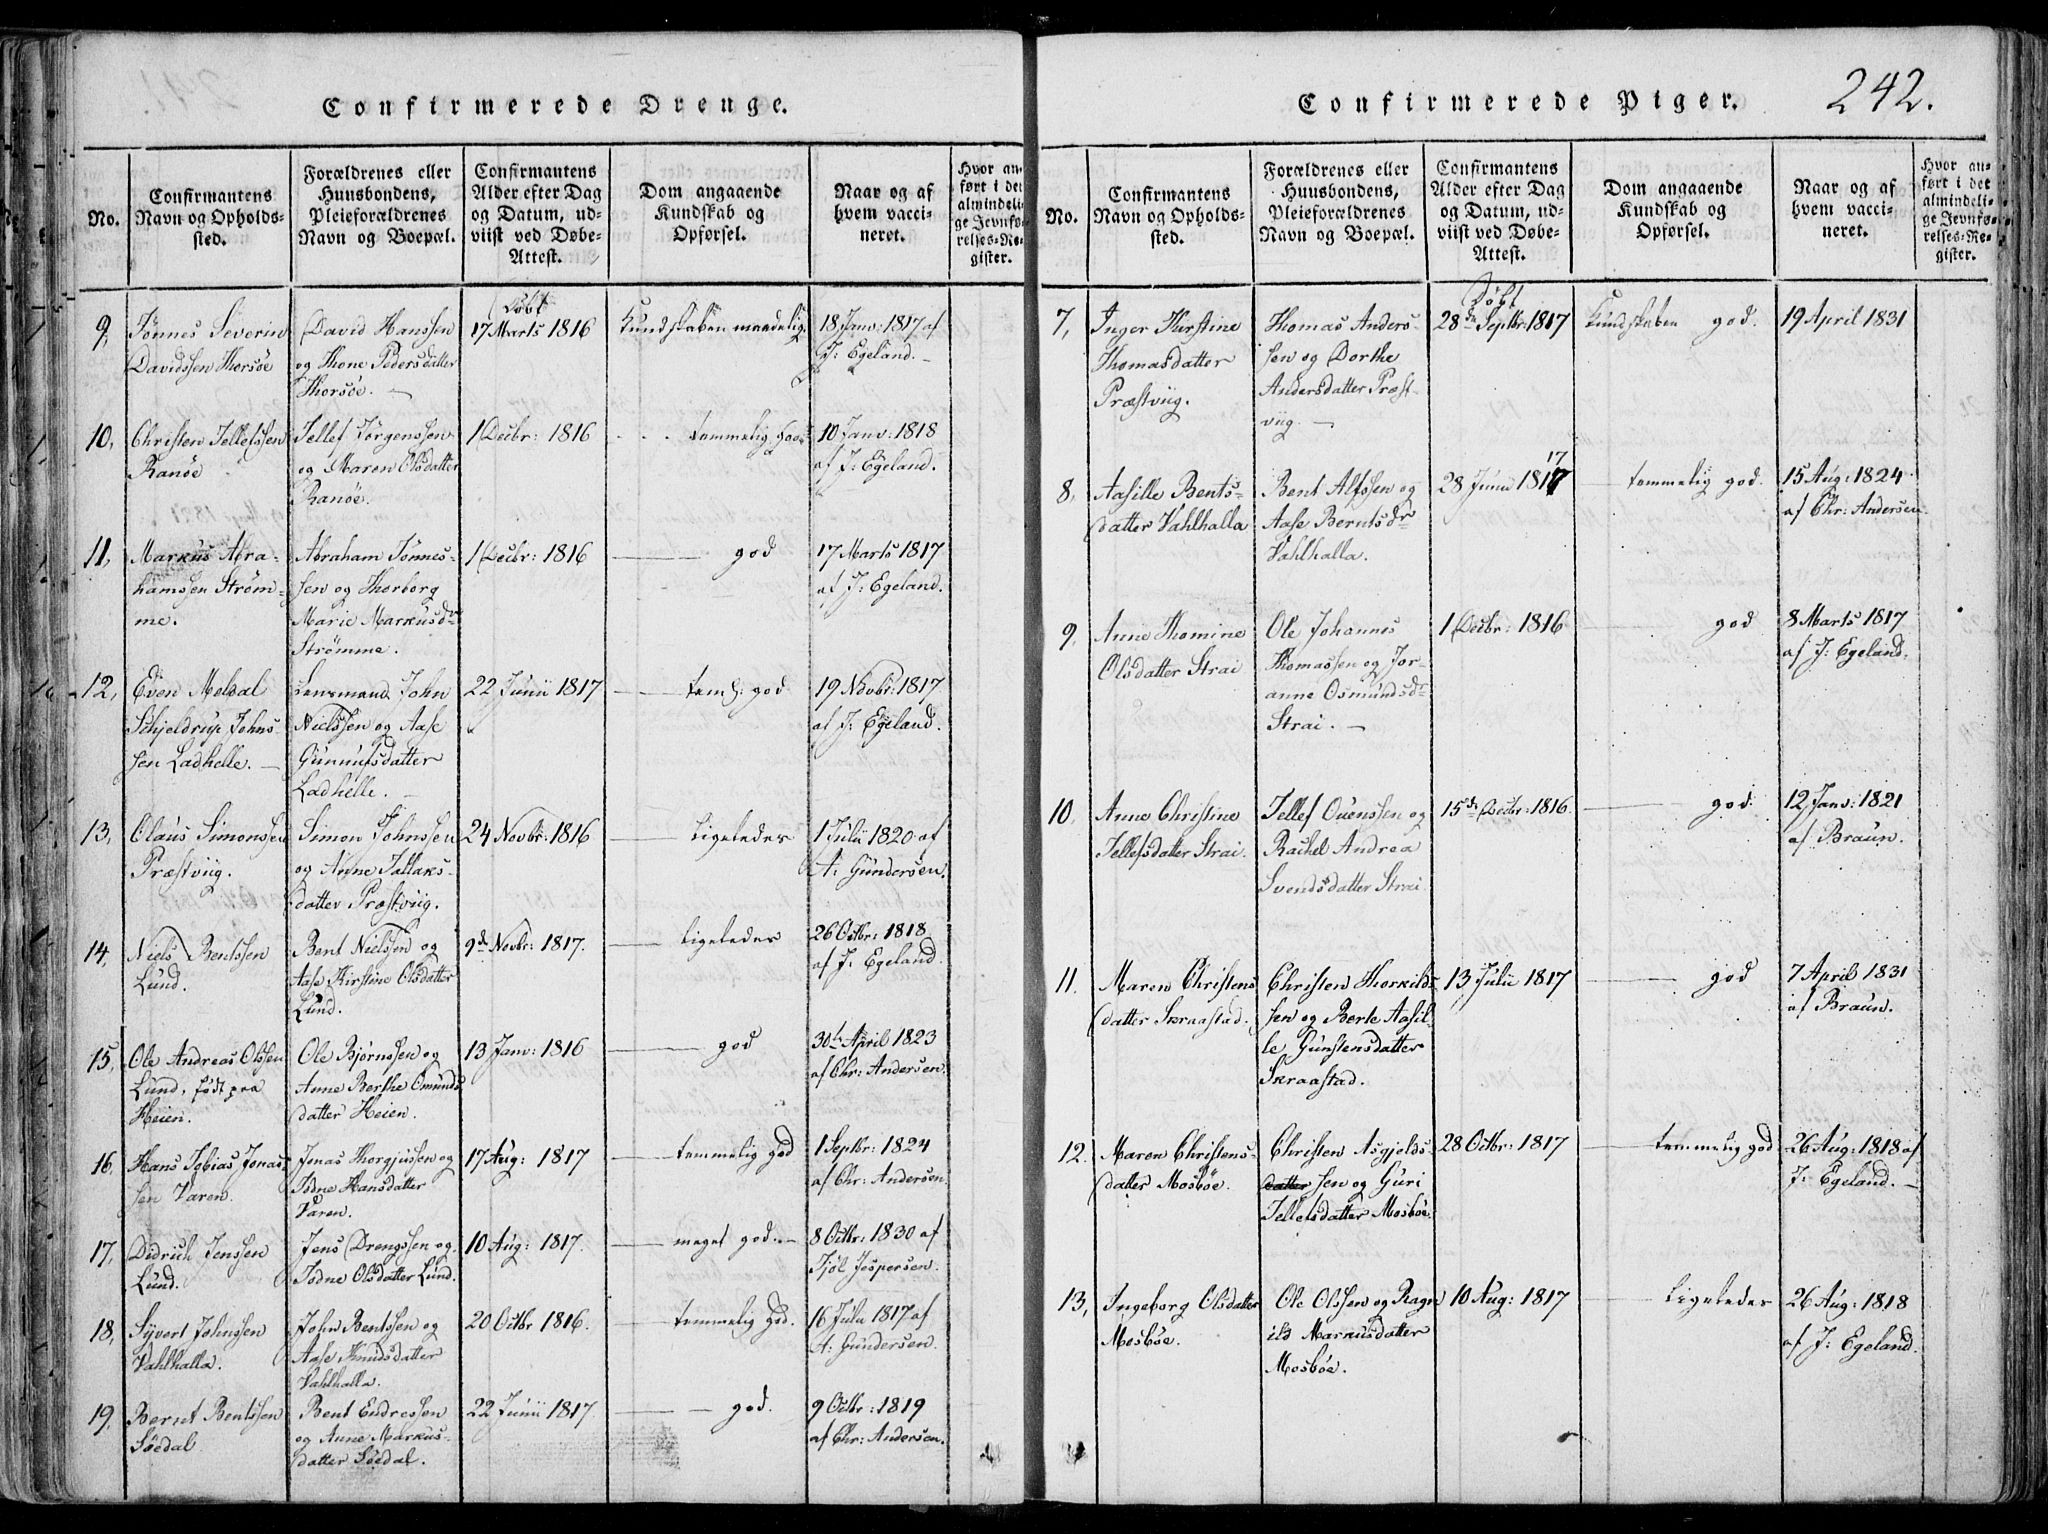 Confirmerede Drenge.
No.
Confirmantens
Navn og Opholds-
sted.
Forældrenes eller
Huusbondens,
Pleieforældrenes
Navn og Boepæl.
Confirmantens
Alder efter Dag
og Datum, ud-
viist ved Døbe-
Attest.
Dom angaaende
Kundskab og
Opførsel.
Naar og af
hvem vacci-
neret.
Hvor an-
ført i det
almindeli-
ge Jevnfø-
relses-Re-
gister.
9,
Tönnes Severin
Davidssen Thorsöe
David Hanssen
og Thone Pedersdatter
Thorsöe. —
Döbt
17 Marts 1816
Kundskaben maadelig
18 Janv: 1817 af
J: Egeland. —
10,
Christen Tellefssen
Ranöe
Tellef Jörgenssen
og Maren Olsdatter
Ranöe.
1 Decbr: 1816
temmelig god
10 Janv: 1818
af J: Egeland.
11,
Markus Abra-
hamssen Ström-
me.
Abraham Tönnes-
sen og Thorborg
Marie Markusdr
Strömme.
1 Decbr: 1816
— god
17 Marts 1817
af J: Egeland.
12,
Even Meldal
Schjeldrup Johns-
sen Ladhelle. —
Lensmand John
Nielssen og Aase
Gunnufsdatter
Ladhelle. —
22 Junii 1817
— teml: god
19 Novbr: 1817
af J: Egeland.
13,
Olaus Simonssen
Præstviig.
Simon Johnssen
og Anne Tallaks-
datter Præstviig.
24 Novbr: 1816
— ligeledes
1 Julii 1820 af
A: Gundersen.
14,
Niels Bentssen
Lund.
Bent Nielssen og
Aase Kirstine Olsdatter
Lund.
9d Novbr: 1817.
— ligeledes
26 Octbr: 1818
af J: Egeland.
15,
Ole Andreas Olssen
Lund, födt paa
Heien.
Ole Bjørnssen og
Anne Berthe Omunds
datter Heien.
13 Janv: 1816
— god
30te April 1823
af Chr: Andersen.
16,
Hans Tobias Jonas-
sen Varen.
Jonas Thorgjussen og
Todne Hansdatter
Varen.
17 Aug: 1817
— temmelig god
1 Septbr: 1824
af Chr: Andersen.
17,
Didrich Jenssen
Lund.
Jens Drengssen og
Todne Olsdatter Lund.
10 Aug: 1817.
— meget god. —
8 Octbr: 1830 af
Tjöl Jespersen.
18,
Syvert Johnssen
Vahlhalla.
John Bentssen og
Aase Knudsdatter
Vahlhalla.
20 Octbr 1816.
— temmelig god.
16 Julii 1817 af
A: Gundersen.
19,
Bernt Bentssen
Söedal.
Bent Endressen
og Anne Markus-
datter Söedal.
22 Junii 1817.
— god.
9 Octbr: 1819
af Chr: Andersen.
Confirmerede Piger.
242.
No.
Confirmantens
Navn og Opholds-
sted.
Forældrenes eller
Huusbondens,
Pleieforældrenes
Navn og Boepæl.
Confirmantens
Alder efter Dag
og Datum, ud-
viist ved Døbe-
Attest.
Dom angaaende
Kundskab og
Opførsel.
Naar og af
hvem vacci-
neret.
Hvor an-
ført i det
almindeli-
ge Jevnfø-
relses-Re-
gister.
7,
Inger Kirstine
Thomasdatter
Præstviig.
Thomas Anders-
sen og Dorthe
Andersdatter Præst-
viig. —
Döbt
28de Septbr: 1817
Kundskaben god.
19 April 1831
8,
Aasille Bents-
datter Vahlhalla
Bent Alfssen og
Aase Berntsdr
Vahlhalla.
17
28 Junii 1817
— temmelig god.
15 Aug: 1824
af Chr: Andersen.
9,
Anne Thomine
Olsdatter Strai
Ole Johannes
Thomassen og Jor-
anne Osmundsdr
Strai. —
1 Decbr: 1816
— god
8 Marts 1817
af J: Egeland.
10,
Anne Christine
Tellefsdatter Strai.
Tellef Ouenssen og
Rachel Andrea
Svendsdatter Strai.
15de Decbr: 1816.
— god.
12 Janv: 1821
af Braun.
11.
Maren Christens
datter Skraastad.
Christen Thorkilds-
sen og Berte Aasil-
le Gunstensdatter
Skraastad.
13 Julii 1817
— god
7 April 1831
af Braun.
12.
Maren Christens-
datter Mosböe.
Christen Asgjelds-
datter sen og Guri
Tellefsdatter Mosböe.
28 Octbr: 1817
— temmelig god
26 Aug: 1818 af
J: Egeland. —
13,
Ingeborg Olsdatter
Mosböe.
Ole Olssen og Ragn
ild Markusdatter
Mosböe.
10 Aug: 1817
— ligeledes
26 Aug: 1818
af J: Egeland.